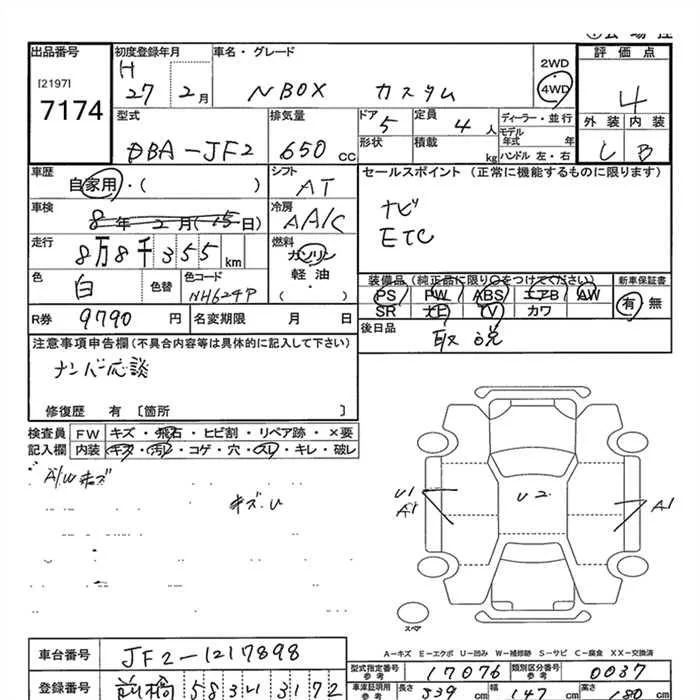 出品番号 初度登録年月 車名・グレード 2WD 評価点
[2197] H 4WD
7174 27 2月 NBOX カスタム 4
型式 排気量 ドア 定員 ディーラー・並行 外装 内装
DBA-JF2 650cc 5 4人 モデル年式 年
形状 積載 kg ハンドル 左・右 C B
車歴 自家用・( ) シフト AT セールスポイント(正常に機能するものに限ります)
車検 8年2月(15日) 冷房 AAC ナビ
走行 8万8千355km 燃料 ガソリン ETC
軽油・( )
色 白 色替 色コード NH624P 装備品(純正品に限り○をつけてください) 新車保証書
PS PW ABS エアB AW 有 無
SR ナビ TV カワ
R券 9790円 名変期限 月 日 後日品 取説
注意事項申告欄(不具合内容等は具体的に記入して下さい)
ナンバー応談
修復歴 有 [箇所 ]
検査員 FW キズ・飛石・ヒビ割・リペア跡・×要
記入欄 内装 キズ・汚レ・コゲ・穴・スレ・キレ・破レ
A/Wキズ
キズ.U
U1 U2
A1 A1
スペア
A-キズ E-エクボ U-凹み W-補修跡 S-サビ C-腐食 XX-交換済
車台番号 JF2-1217898
型式指定番号 参考 17076 類別区分番号 参考 0037
登録番号 前橋 583い3172 車庫証明用 参考 長さ 339cm 幅 147cm 高さ 180cm